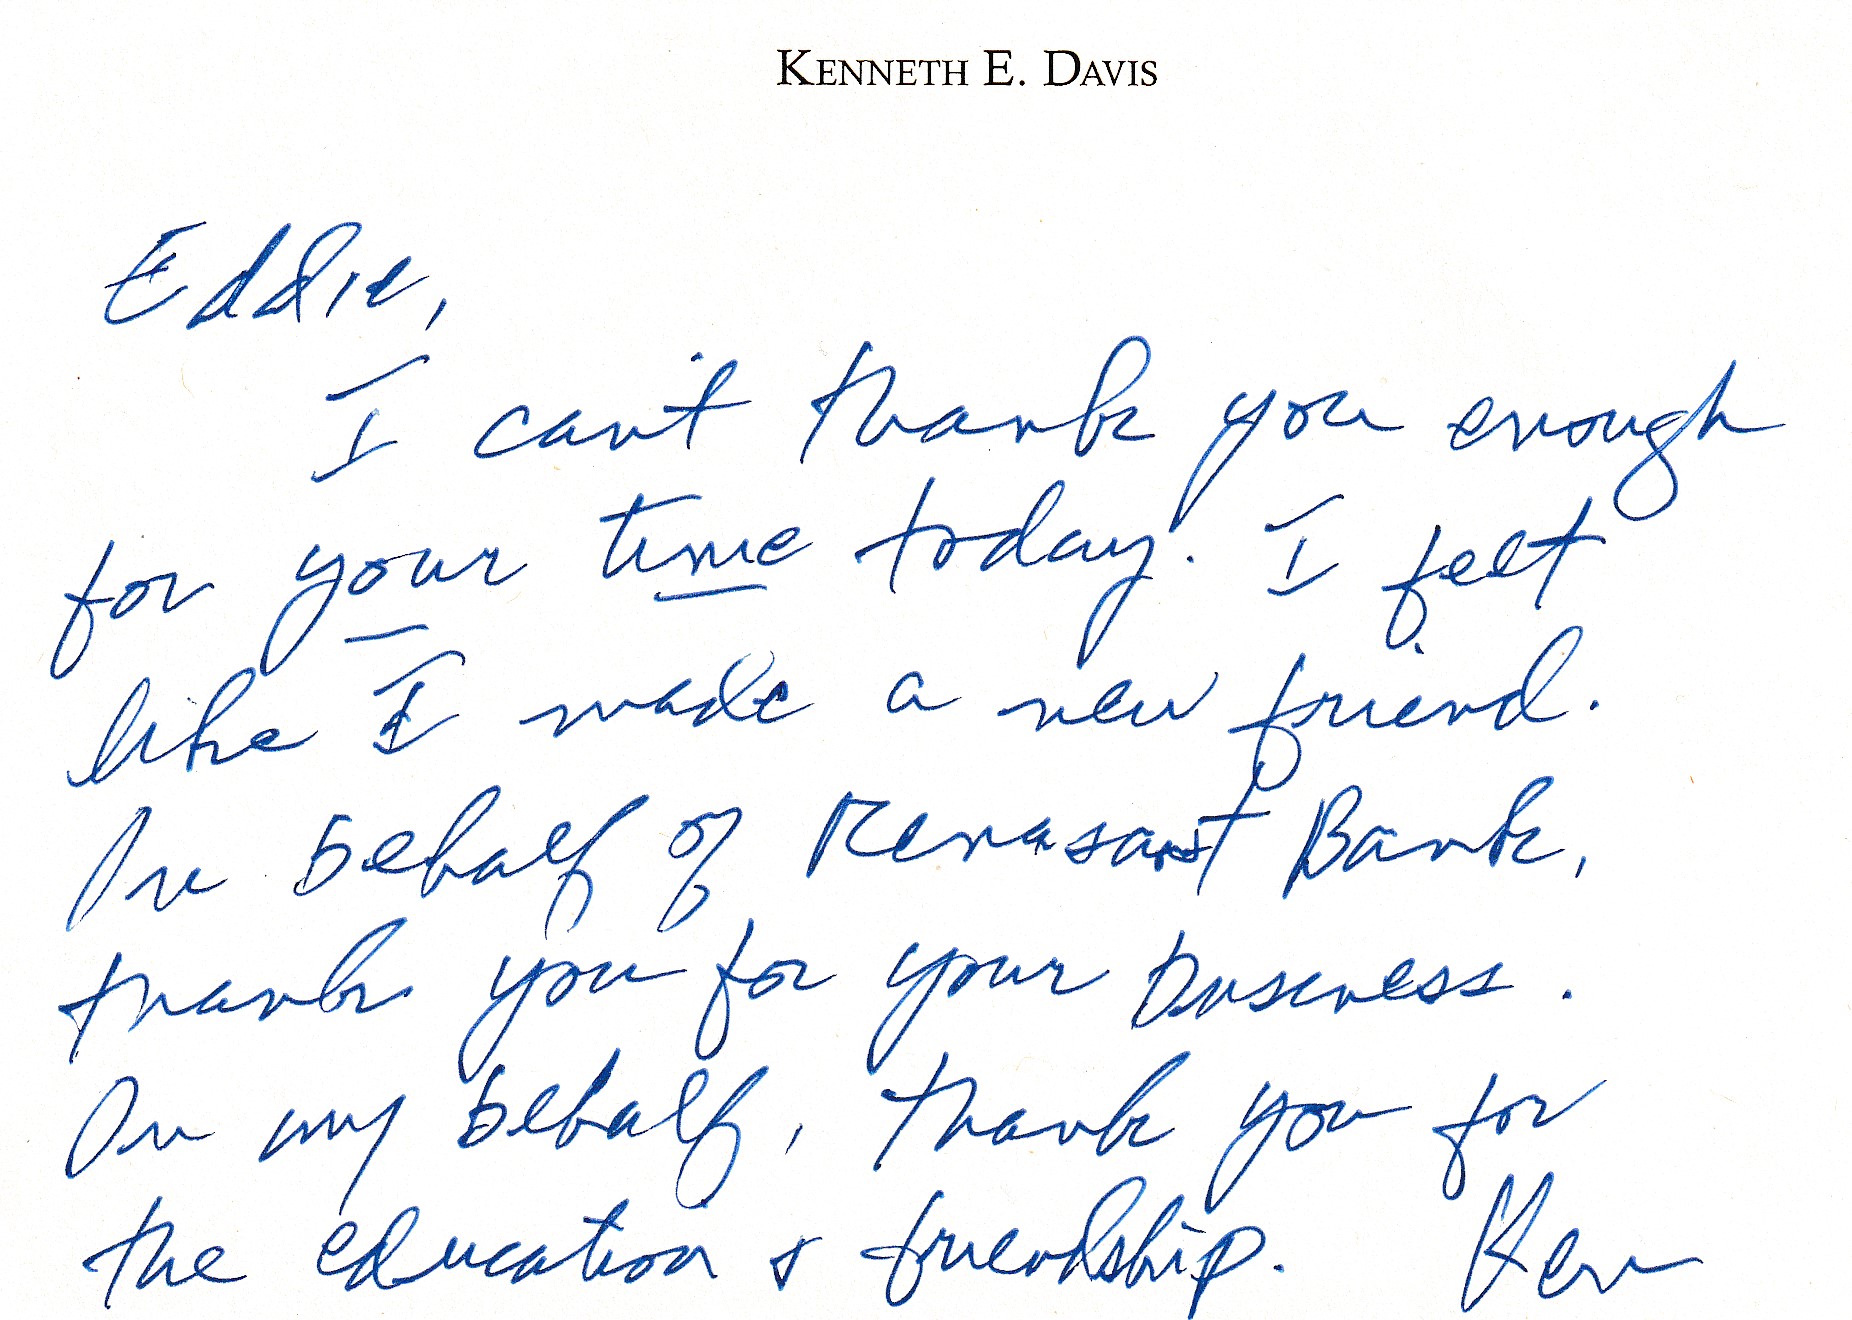 KENNETH E. DAVIS
Eddie,
I can't thank you enough
for your time today. I felt
like I made a new friend.
On behalf of Renasant Bank,
thank you for your business.
On my behalf, thank you for
the education & friendship. Ken